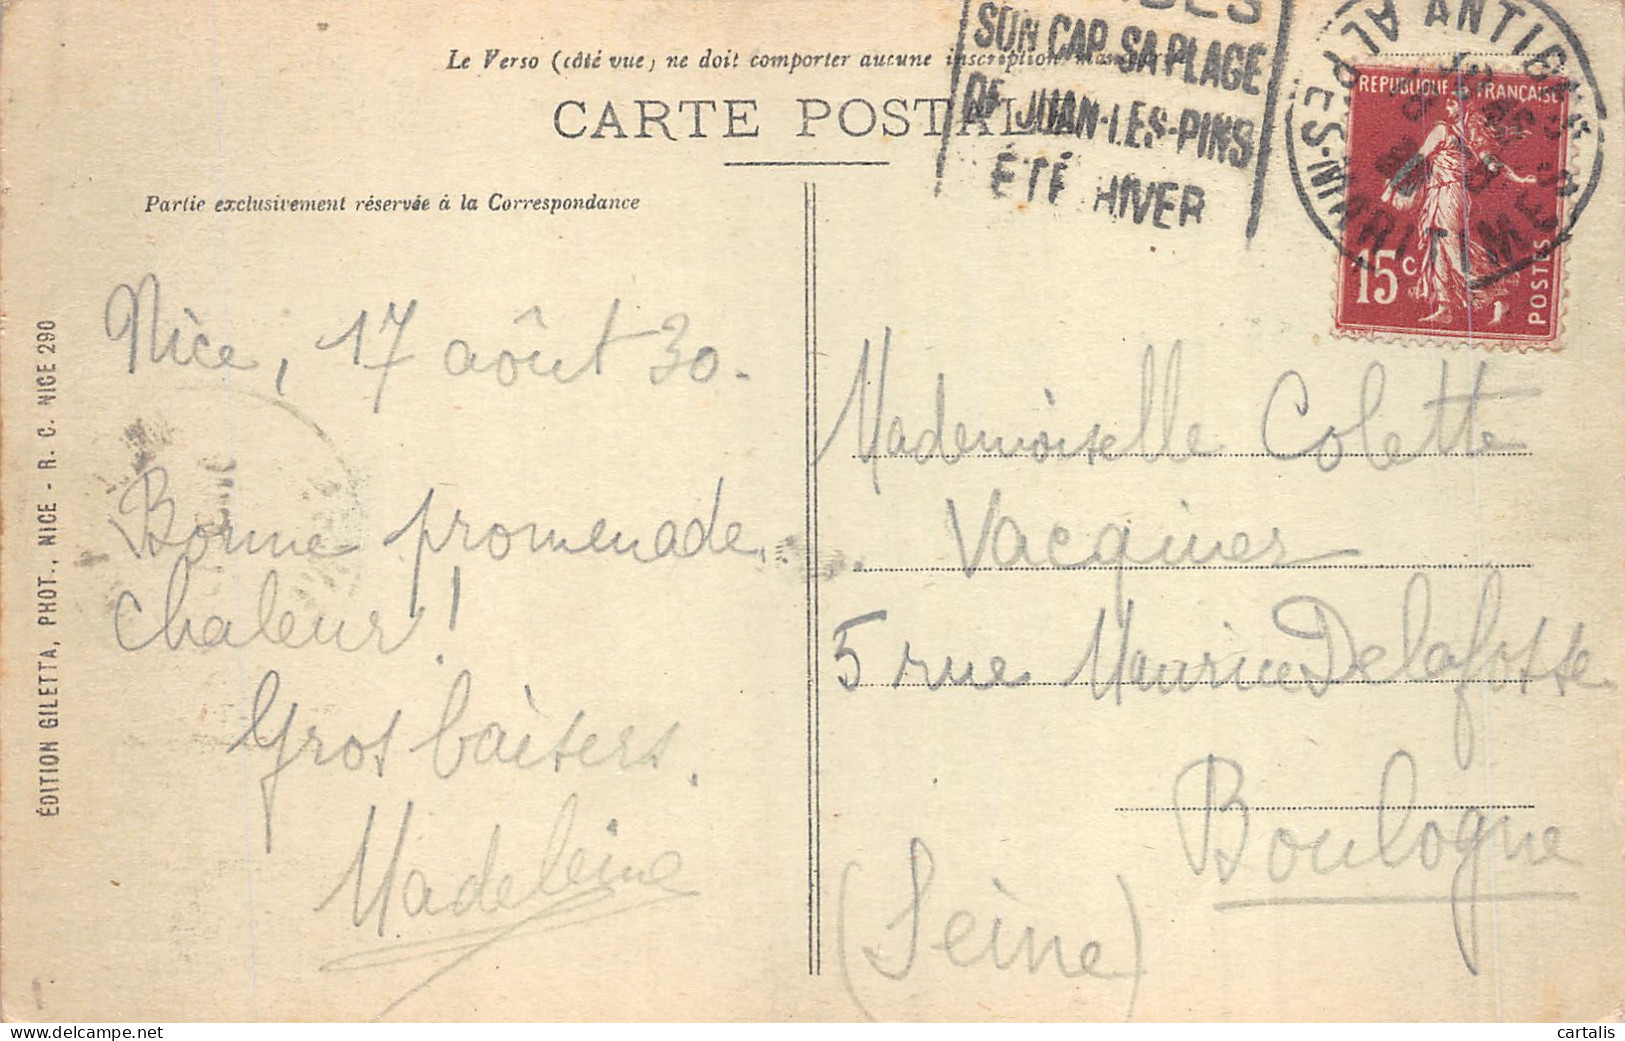 SON CAP SA PLAGE
DE JUAN-LES-PINS
ÉTÉ HIVER
ANTIBES
ALPES-MARITIMES
REPUBLIQUE FRANÇAISE
15c
POSTES
Le Verso (côté vue) ne doit comporter aucune inscription
CARTE POSTALE
Partie exclusivement réservée à la Correspondance
ÉDITION GILETTA, PHOT., NICE - R. C. NICE 290
Nice, 17 août 30.
Bonne promenade.
Chaleur!
Gros baisers.
Madeleine
Mademoiselle Colette
Vacquier
5 rue Maurice Delafosse
Boulogne
(Seine)
cartalis